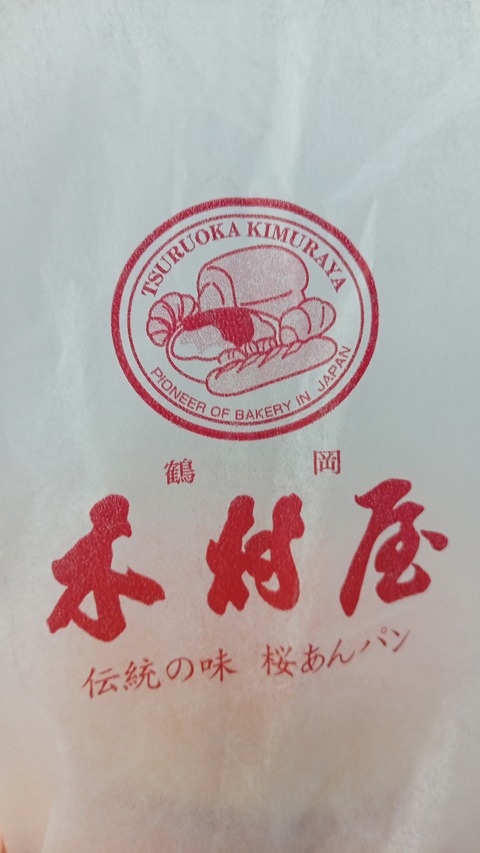 TSURUOKA KIMURAYA
PIONEER OF BAKERY IN JAPAN
鶴岡
木村屋
伝統の味 桜あんパン